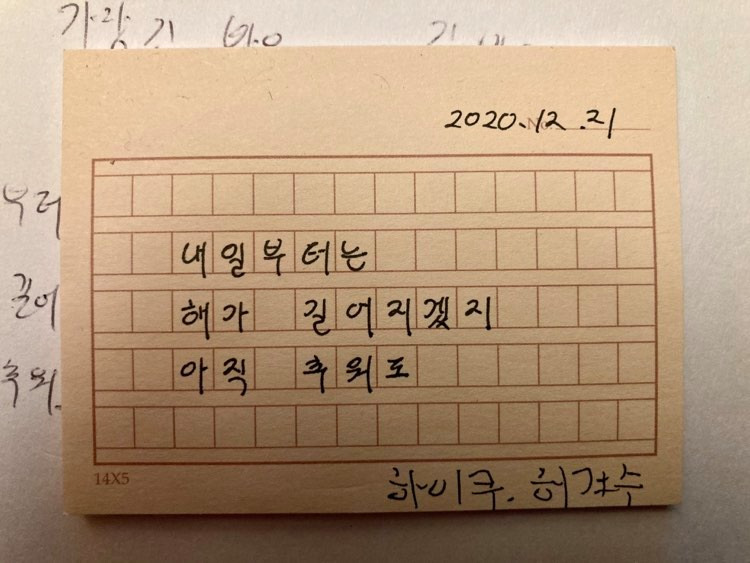 가장 긴 밤
No. 2020.12.21
부터
내일부터는
길어
해가 길어지겠지
추위
아직 추위도
14X5
하이쿠.